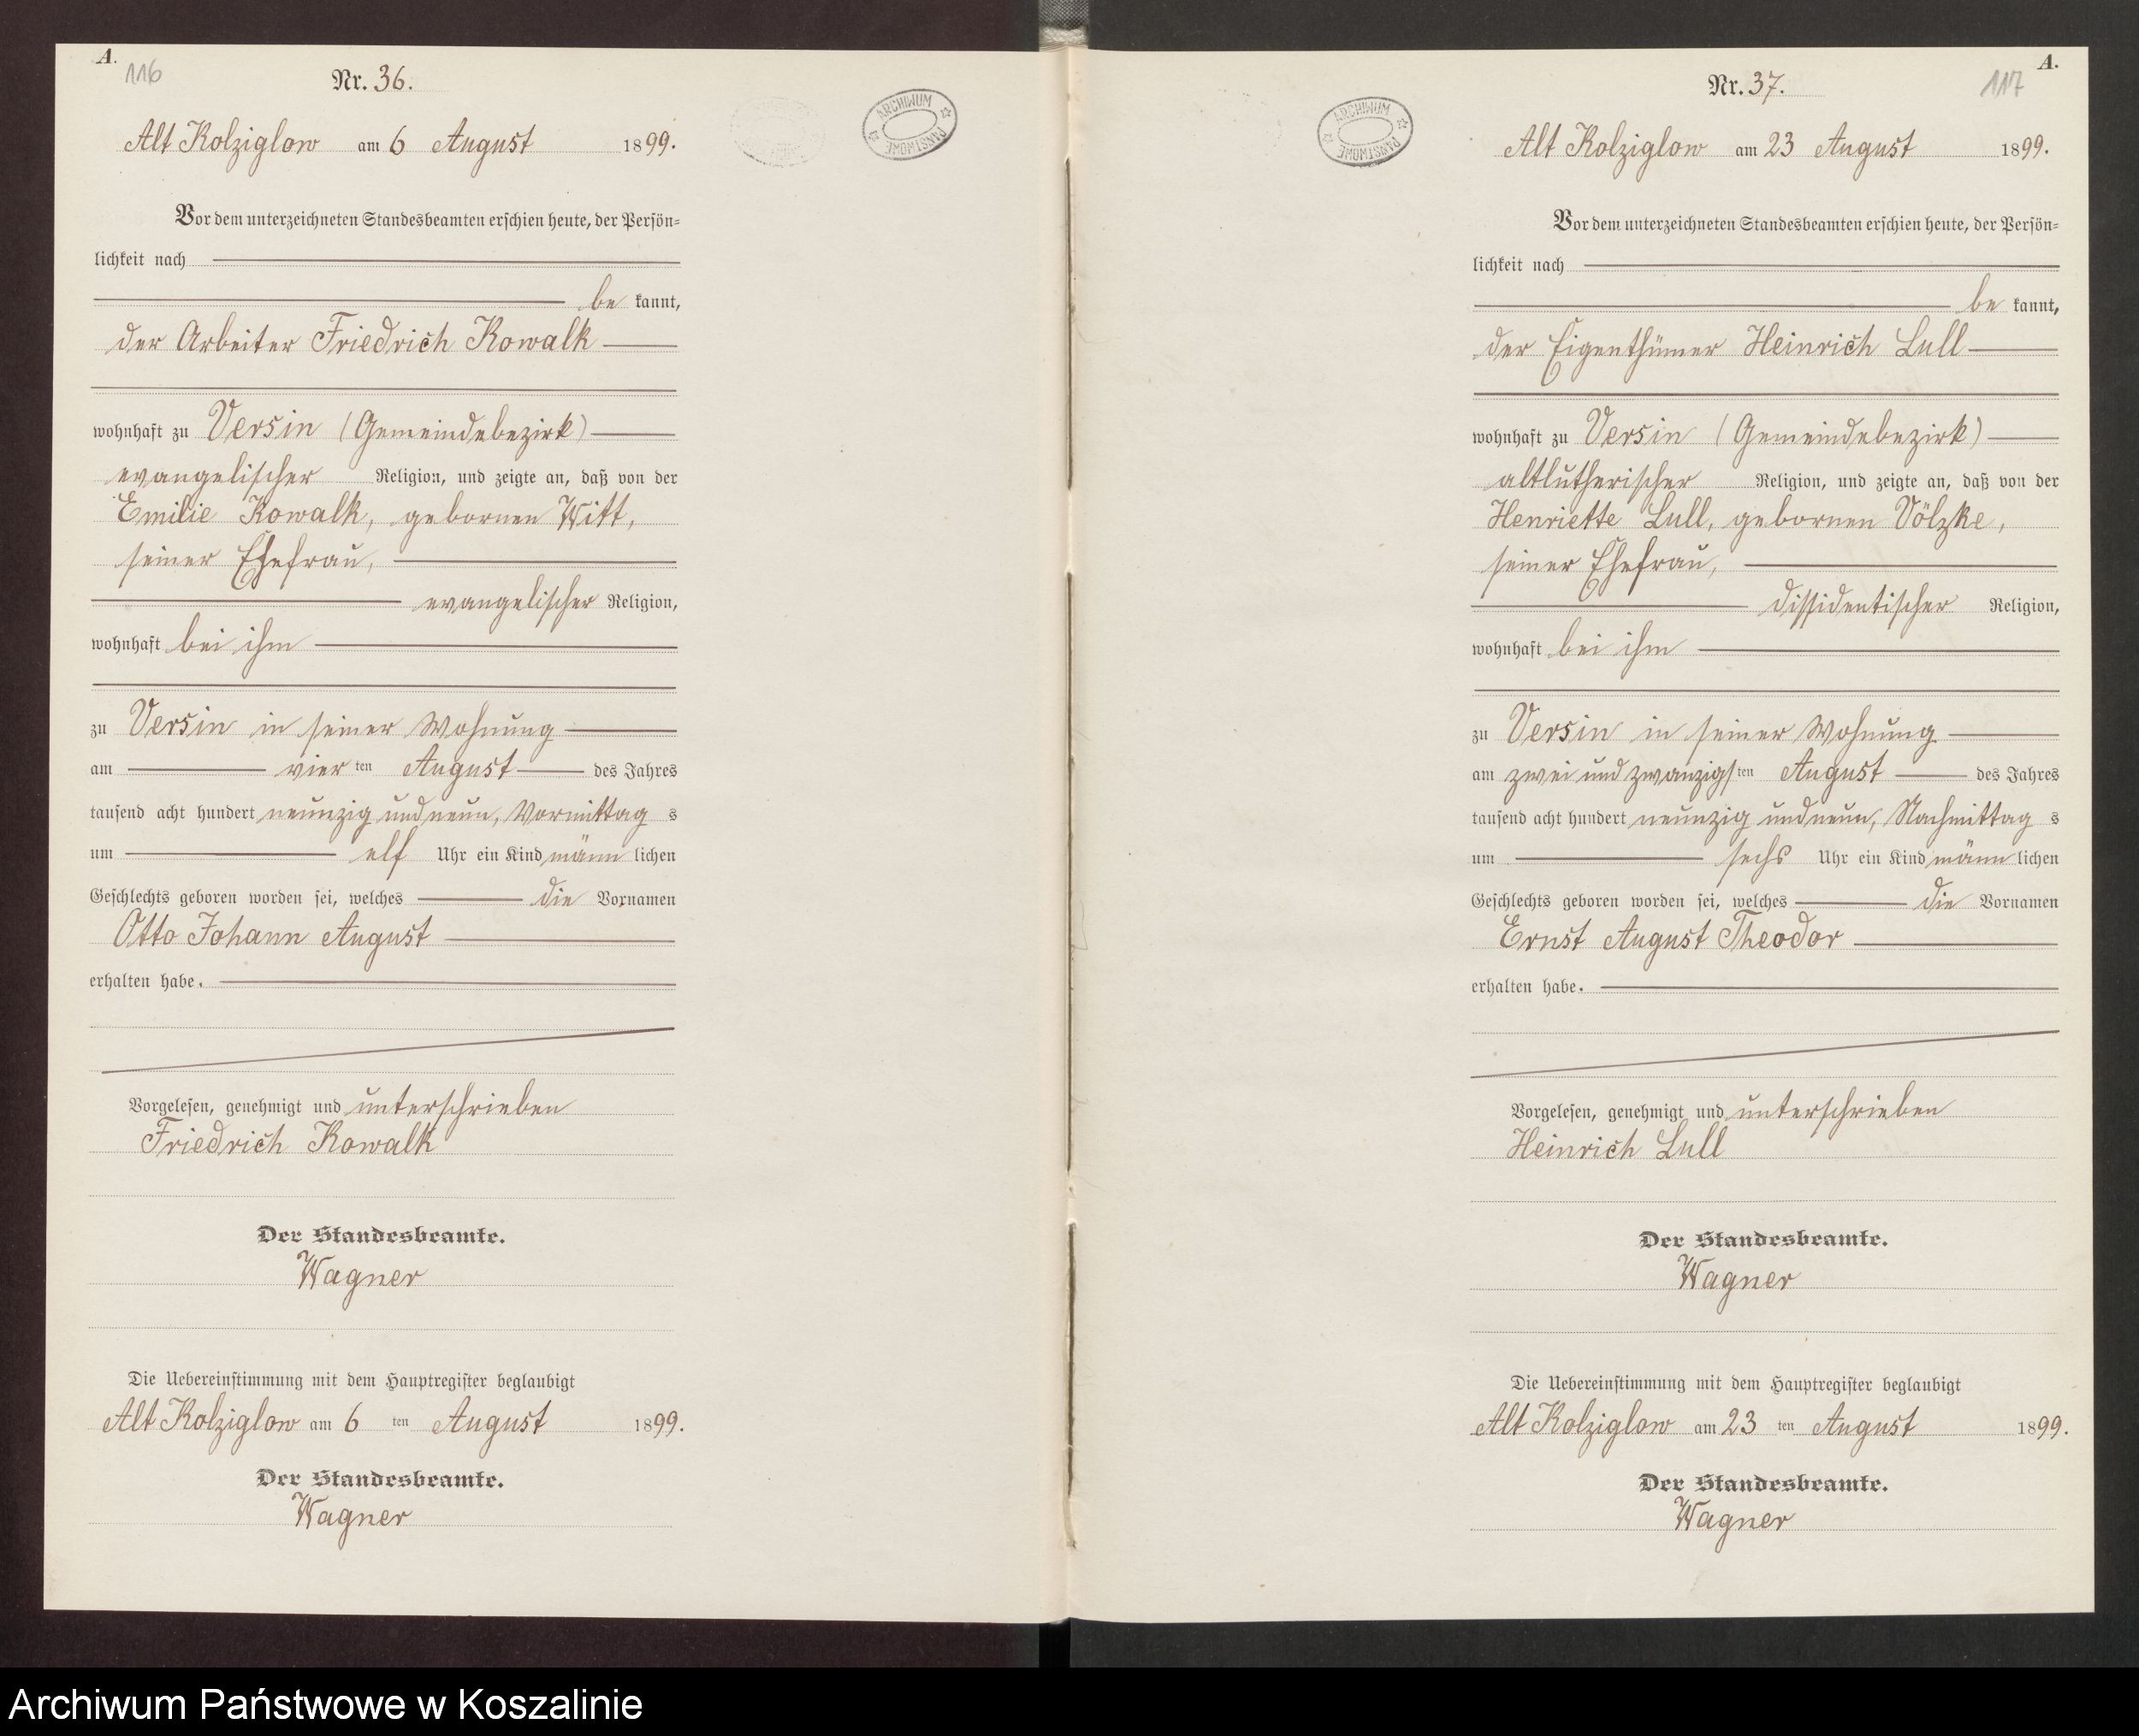 A.
116
Nr. 36.
ARCHIWUM PAŃSTWOWE
Alt Kolziglow am 6 August 1899.
Vor dem unterzeichneten Standesbeamten erschien heute, der Persön=
lichkeit nach
be kannt,
der Arbeiter Friedrich Kowalk
wohnhaft zu Versin (Gemeindebezirk)
evangelischer Religion, und zeigte an, daß von der
Emilie Kowalk, gebornen Witt,
seiner Ehefrau,
evangelischer Religion,
wohnhaft bei ihm
zu Versin in seiner Wohnung
am vier ten August des Jahres
tausend acht hundert neunzig und neun, Vormittag s
um elf Uhr ein Kind männ lichen
Geschlechts geboren worden sei, welches die Vornamen
Otto Johann August
erhalten habe.
Vorgelesen, genehmigt und unterschrieben
Friedrich Kowalk
Der Standesbeamte.
Wagner
Die Uebereinstimmung mit dem Hauptregister beglaubigt
Alt Kolziglow am 6 ten August 1899.
Der Standesbeamte.
Wagner
A.
117
Nr. 37.
ARCHIWUM PAŃSTWOWE
Alt Kolziglow am 23 August 1899.
Vor dem unterzeichneten Standesbeamten erschien heute, der Persön=
lichkeit nach
be kannt,
der Eigenthümer Heinrich Lull
wohnhaft zu Versin (Gemeindebezirk)
altlutherischer Religion, und zeigte an, daß von der
Henriette Lull, gebornen Völzke,
seiner Ehefrau,
dissidentischer Religion,
wohnhaft bei ihm
zu Versin in seiner Wohnung
am zwei und zwanzigs ten August des Jahres
tausend acht hundert neunzig und neun, Nachmittag s
um sechs Uhr ein Kind männ lichen
Geschlechts geboren worden sei, welches die Vornamen
Ernst August Theodor
erhalten habe.
Vorgelesen, genehmigt und unterschrieben
Heinrich Lull
Der Standesbeamte.
Wagner
Die Uebereinstimmung mit dem Hauptregister beglaubigt
Alt Kolziglow am 23 ten August 1899.
Der Standesbeamte.
Wagner
Archiwum Państwowe w Koszalinie